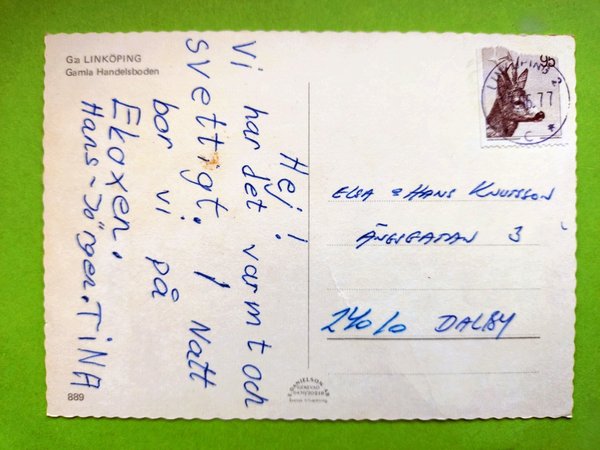 G:a LINKÖPING
Gamla Handelsboden
Hej!
Vi har det varmt och
svettigt. I Natt
bor vi på
Ekoxen.
Hans-Jörgen. TINA
95
LINKÖPING 2
77
C *
ELSA & HANS KNUTSSON
ÄNGSGATAN 3
24010 DALBY
889
DANIELSON